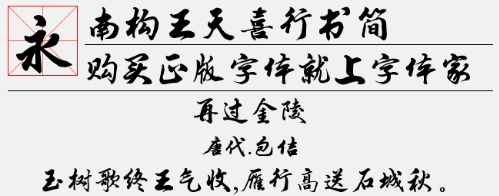 永
南构王天喜行书简
购买正版字体就上字体家
再过金陵
唐代.包佶
玉树歌终王气收,雁行高送石城秋。